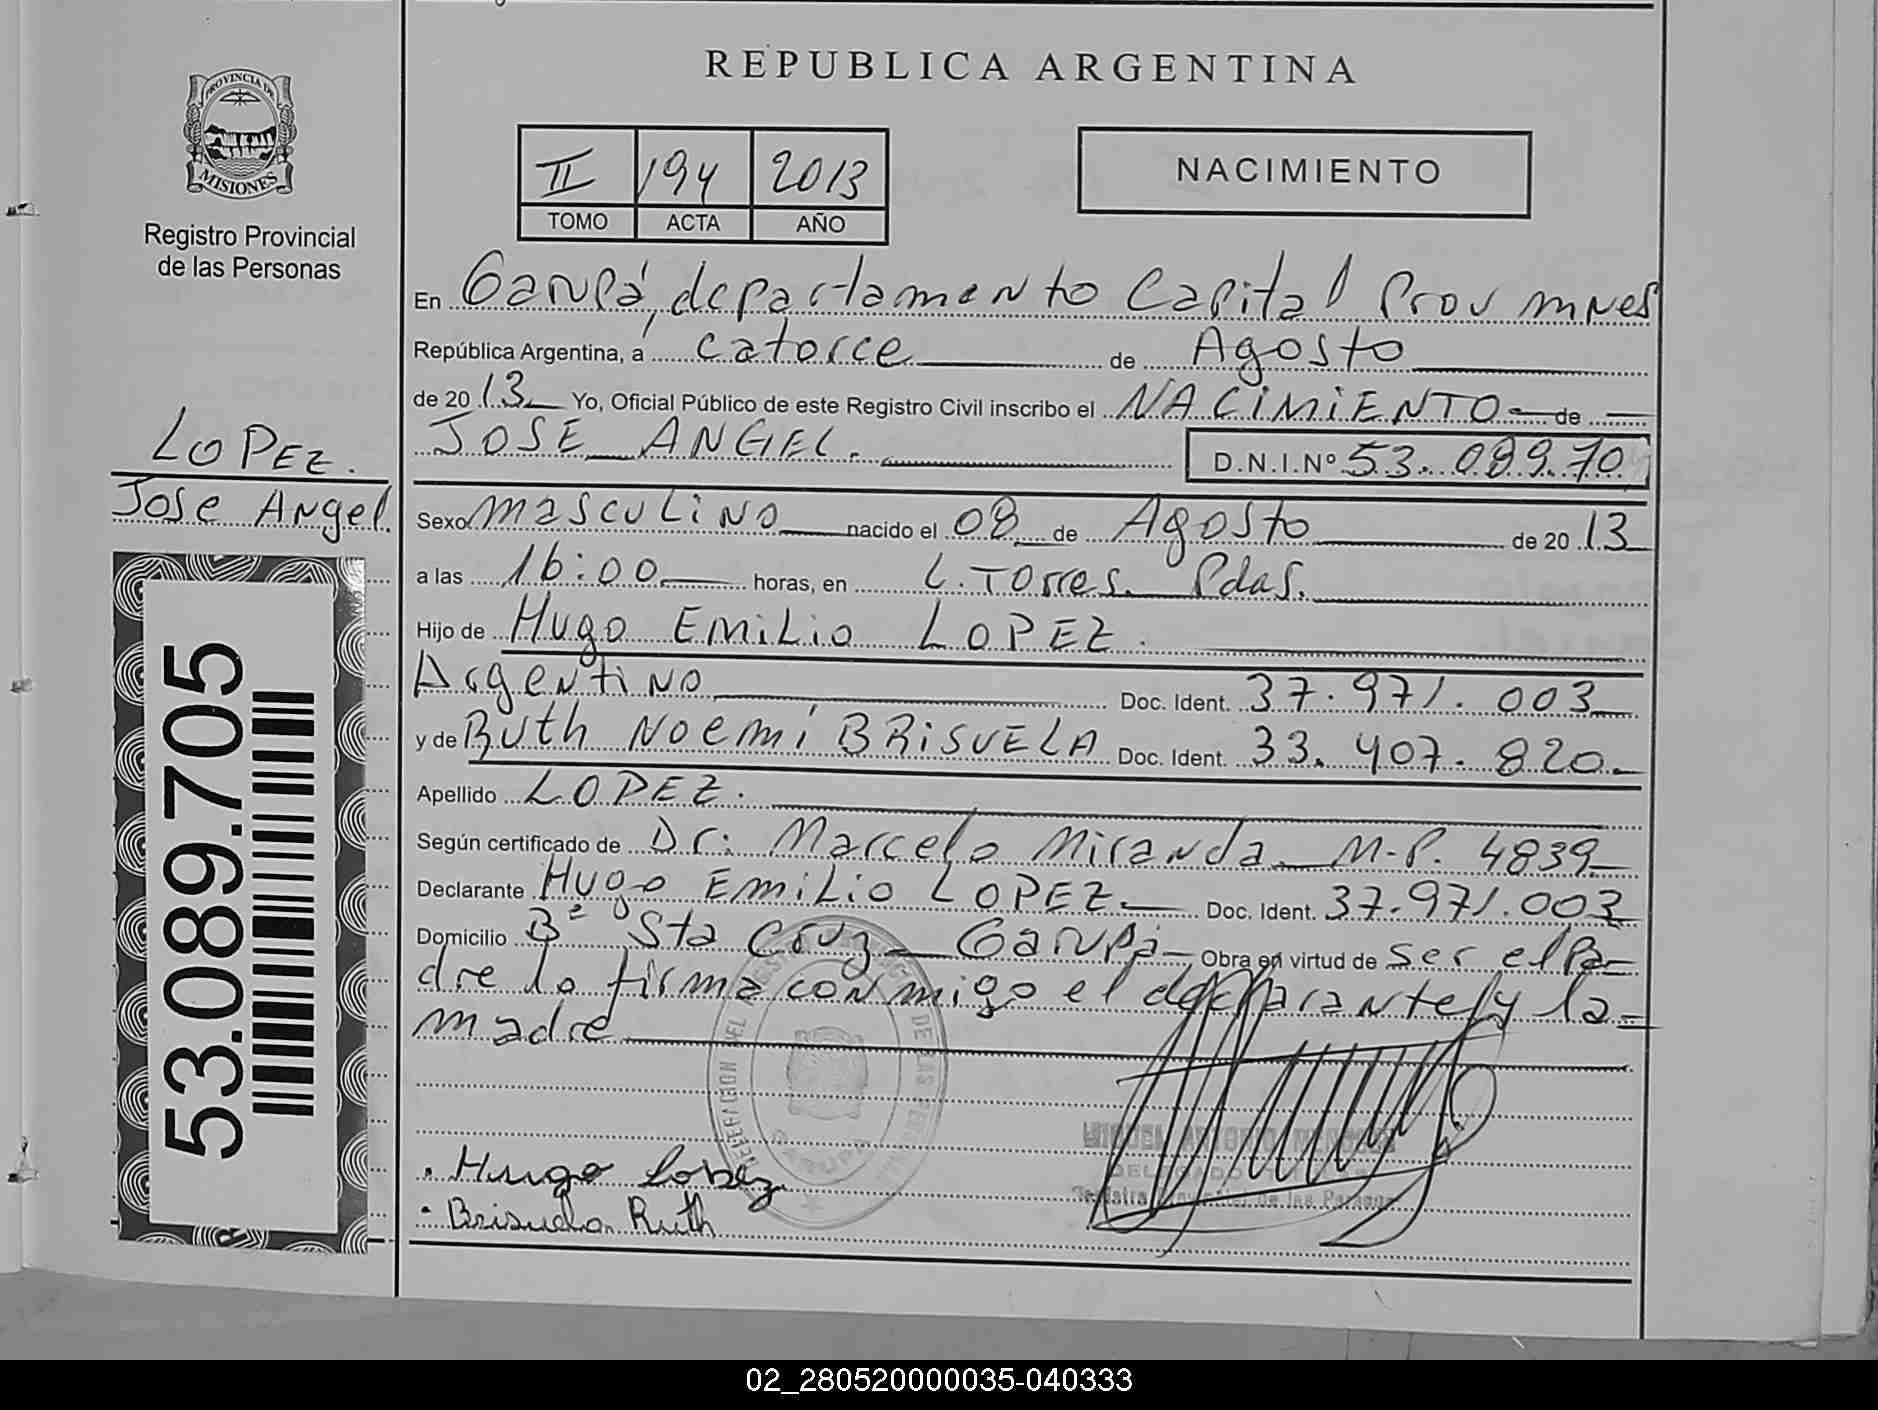 REPUBLICA ARGENTINA
PROVINCIA DE
MISIONES
Registro Provincial
de las Personas
II 194 2013
TOMO ACTA AÑO
NACIMIENTO
En Garupá, departamento Capital Prov mnes
República Argentina, a catorce de Agosto
de 2013 Yo, Oficial Público de este Registro Civil inscribo el NACIMIENTO de
JOSE ANGEL. D.N.I.Nº 53.089.70
LOPEZ.
Jose Angel
Sexo masculino nacido el 08 de Agosto de 2013
a las 16:00 horas, en L. Torres. Pdas.
Hijo de Hugo Emilio LOPEZ.
Argentino Doc. Ident. 37.971.003
y de Ruth Noemí BRISUELA Doc. Ident. 33.407.820
Apellido LOPEZ.
Según certificado de Dr: Marcelo Miranda M.P. 4839
Declarante Hugo Emilio LOPEZ Doc. Ident. 37.971.003
Domicilio Bº Sta Cruz Garupá Obra en virtud de ser el Pa-
dre lo firma conmigo el declarante y la
madre
53.089.705
DE LAS
GARUPA
DELEGADO
de las Personas
Hugo Lopez
Brisuela Ruth
02_280520000035-040333